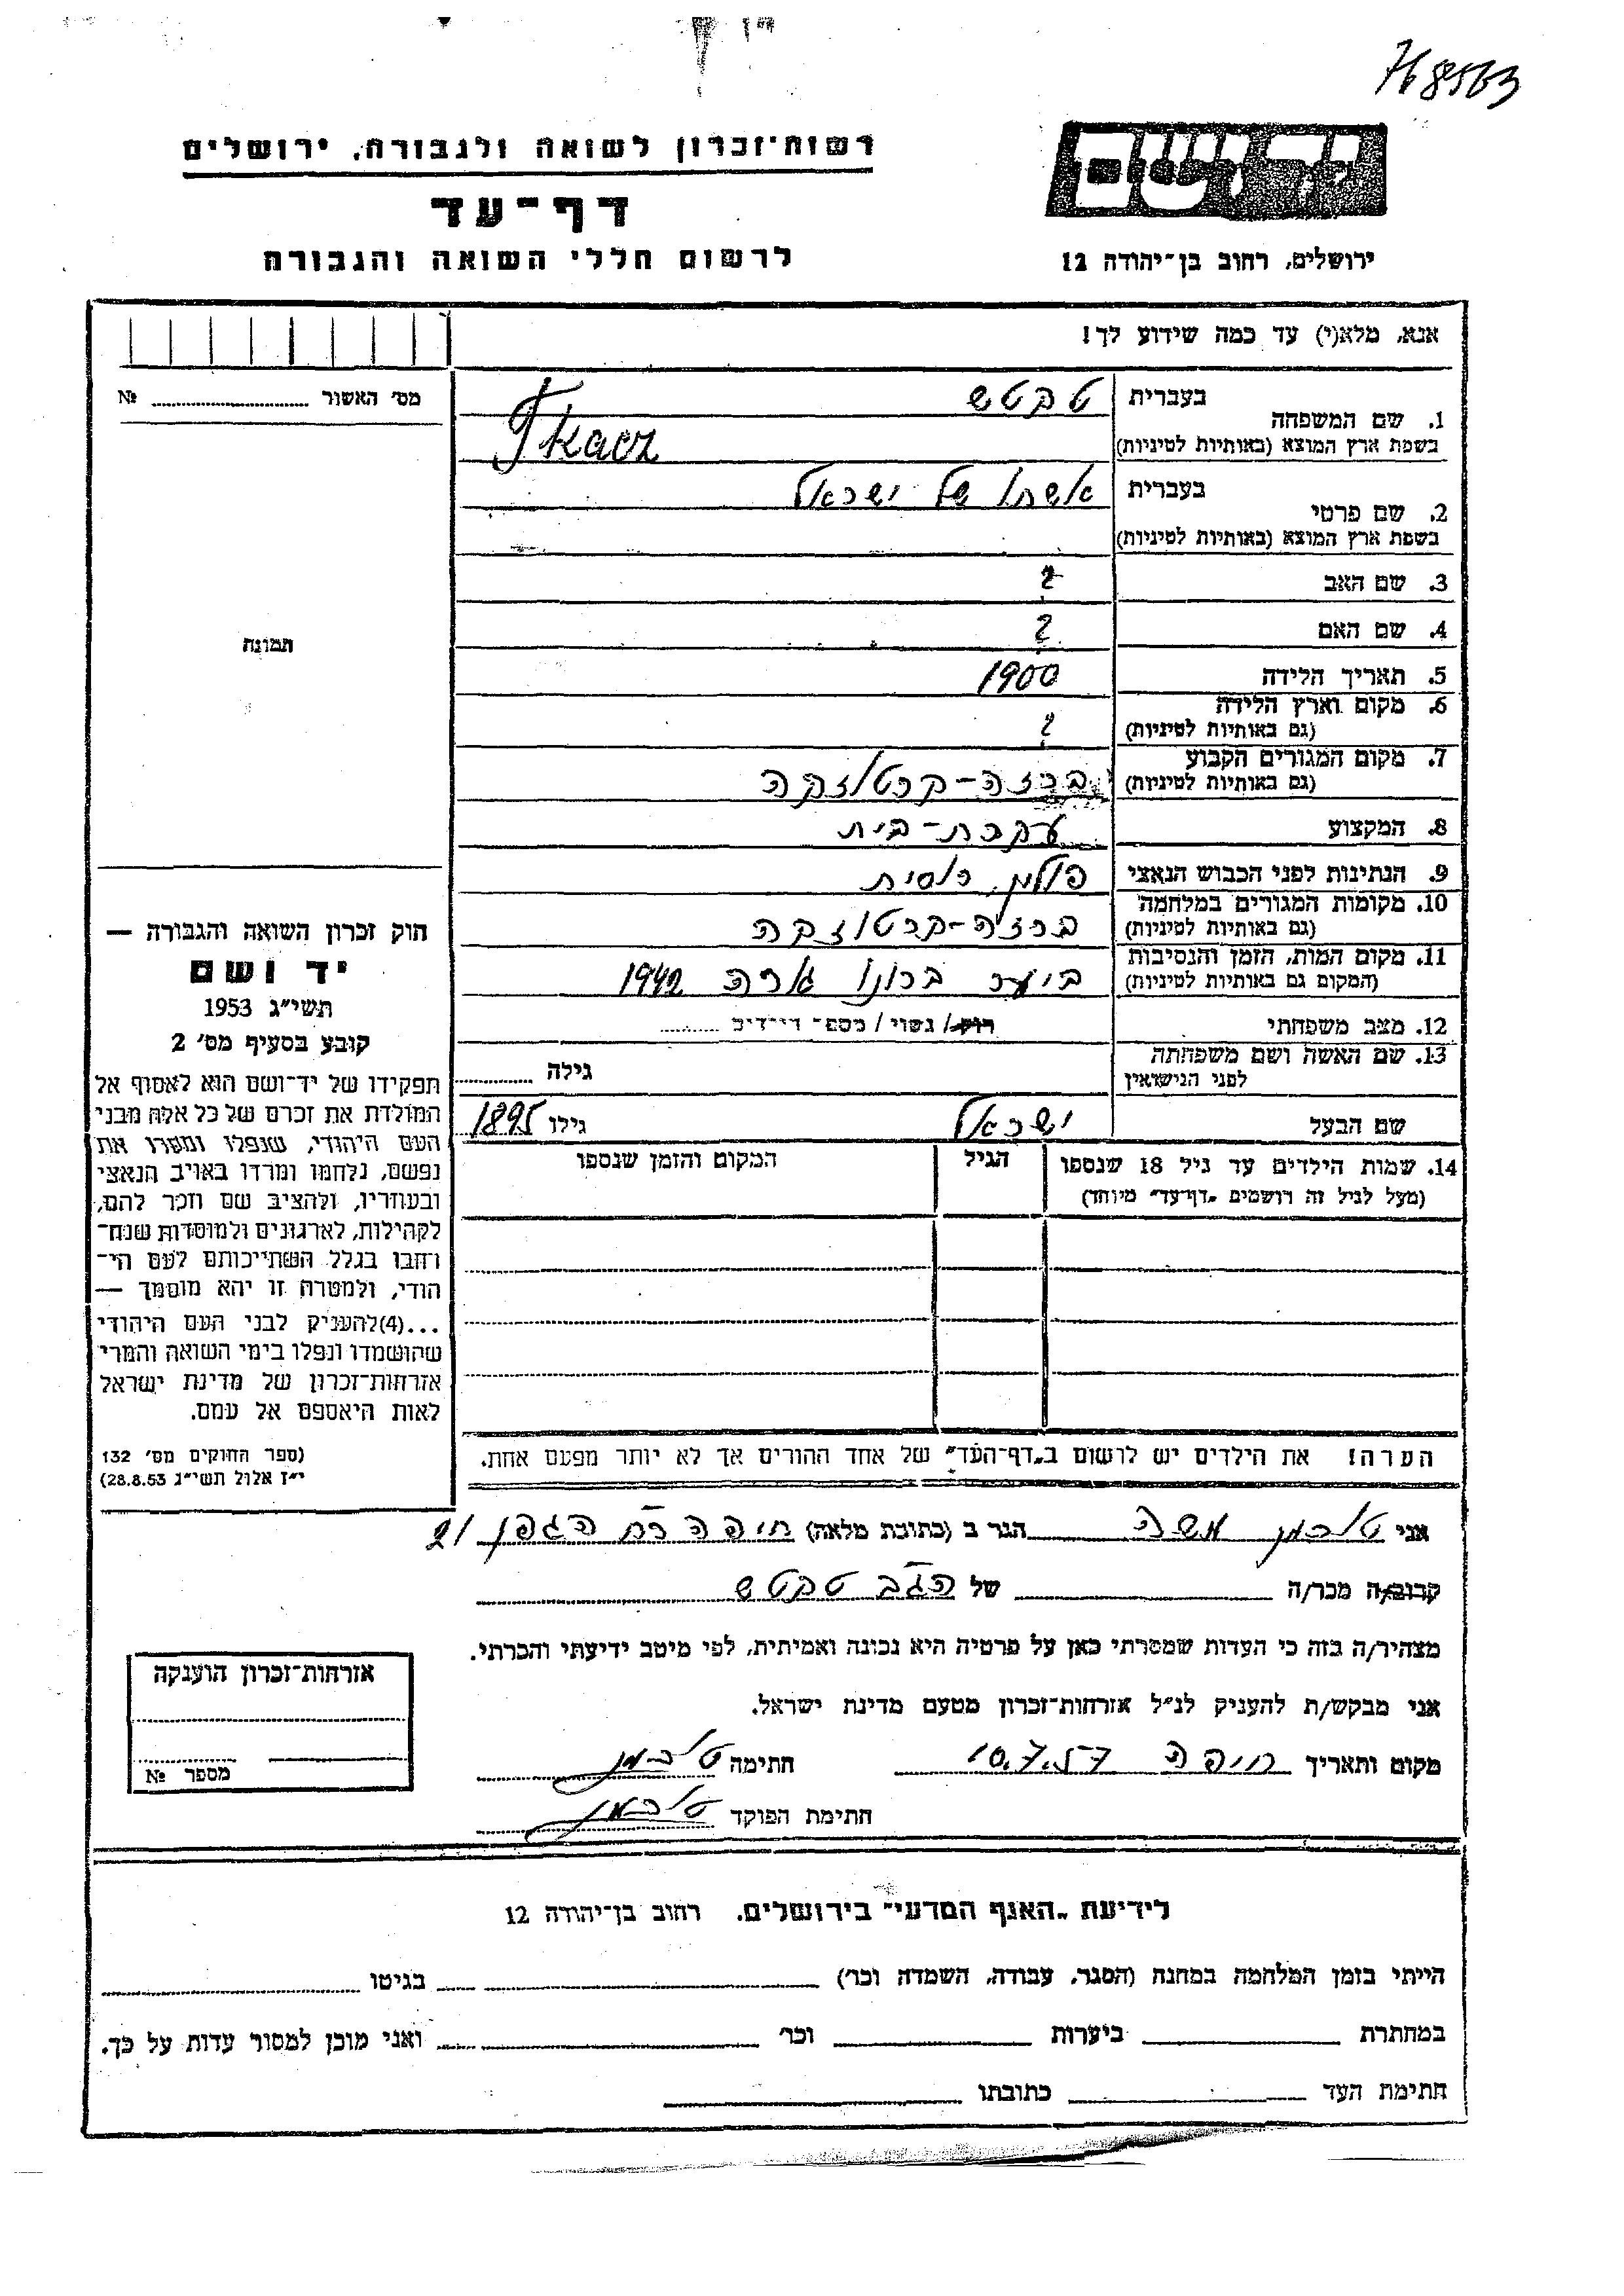 768563
רשות-זכרון לשואה ולגבורה, ירושלים
דף-עד
לרשום חללי השואה והגבורה
יד ושם
ירושלים, רחוב בן-יהודה 12
אנא, מלא(י) עד כמה שידוע לך!
מס׳ האשור № 
תמונה
1. שם המשפחה
בעברית טקטש
בשפת ארץ המוצא (באותיות לטיניות) Tkacz
2. שם פרטי
בעברית אשתו של ישראל
בשפת ארץ המוצא (באותיות לטיניות)
3. שם האב ?
4. שם האם ?
5. תאריך הלידה 1900
6. מקום וארץ הלידה
(גם באותיות לטיניות) ?
7. מקום המגורים הקבוע
(גם באותיות לטיניות) ברזה-קרטוזקה
8. המקצוע עקרת-בית
9. הנתינות לפני הכבוש הנאצי
10. מקומות המגורים במלחמה
(גם באותיות לטיניות) ברזה-קרטוזקה
11. מקום המות, הזמן והנסיבות
(המקום גם באותיות לטיניות) ביער ברונו גורה 1942
12. מצב משפחתי רוק/ נשוי / מספר ילדים
13. שם האשה ושם משפחתה
לפני הנישואין גילה
שם הבעל ישראל גילו 1895
14. שמות הילדים עד גיל 18 שנספו
(מעל לגיל זה רושמים „דף-עד״ מיוחד)
הגיל
המקום והזמן שנספו
הערה! את הילדים יש לרשום ב„דף-העד״ של אחד ההורים אך לא יותר מפעם אחת.
חוק זכרון השואה והגבורה —
יד ושם
תשי״ג 1953
קובע בסעיף מס׳ 2
תפקידו של יד-ושם הוא לאסוף אל
המולדת את זכרם של כל אלה מבני
העם היהודי, שנפלו ומסרו את
נפשם, נלחמו ומרדו באויב הנאצי
ובעוזריו, ולהציב שם וזכר להם,
לקהילות, לארגונים ולמוסדות שנח-
רבו בגלל השתייכותם לעם הי-
הודי, ולמטרה זו יהא מוסמך —
...(4)להעניק לבני העם היהודי
שהושמדו ונפלו בימי השואה והמרי
אזרחות-זכרון של מדינת ישראל
לאות היאספם אל עמם.
(ספר החוקים מס׳ 132
י״ז אלול תשי״ג 28.8.53)
אני טוכמן משה הגר ב (כתובת מלאה) חיפה רח הגפן 21
קרוב/ה מכר/ה של הגב טקטש
מצהיר/ה בזה כי העדות שמסרתי כאן על פרטיה היא נכונה ואמיתית, לפי מיטב ידיעתי והכרתי.
אני מבקש/ת להעניק לנ״ל אזרחות-זכרון מטעם מדינת ישראל.
מקום ותאריך חיפה 10.7.57 חתימה טוכמן
חתימת הפוקד טוכמן
אזרחות-זכרון הוענקה
מספר №
לידיעת „האגף המדעי״ בירושלים, רחוב בן-יהודה 12
הייתי בזמן המלחמה במחנה (הסגר, עבודה, השמדה וכר׳) בגיטו
במחתרת ביערות וכר׳ ואני מוכן למסור עדות על כך.
חתימת העד כתובתו